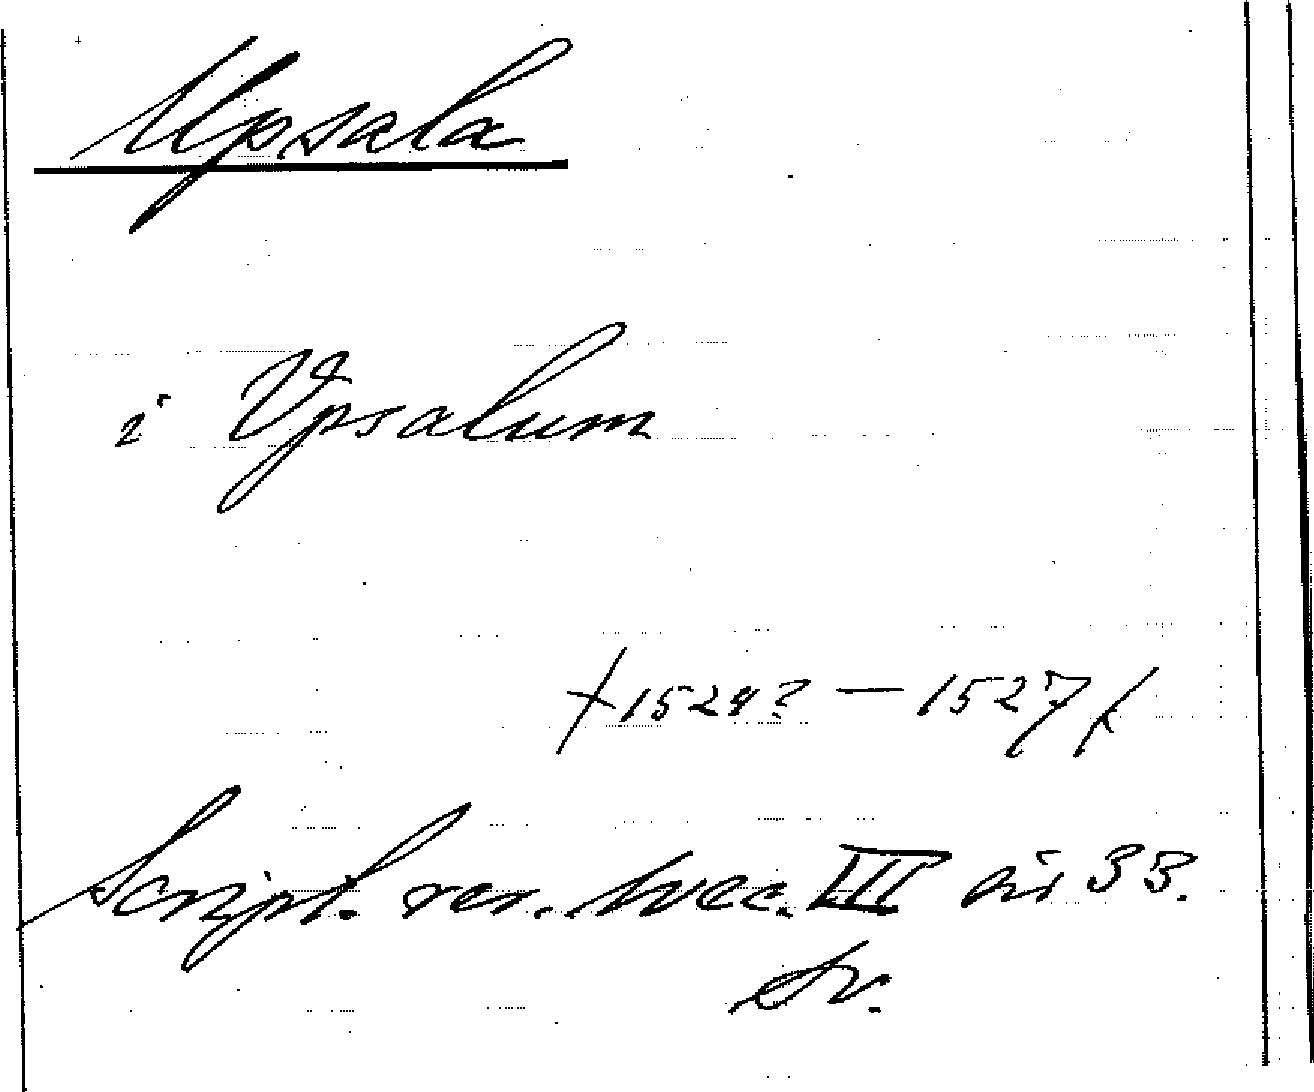 Upsala
i Vpsalum
+ 1524? — 1527 +
Script. rer. svec. III 33.